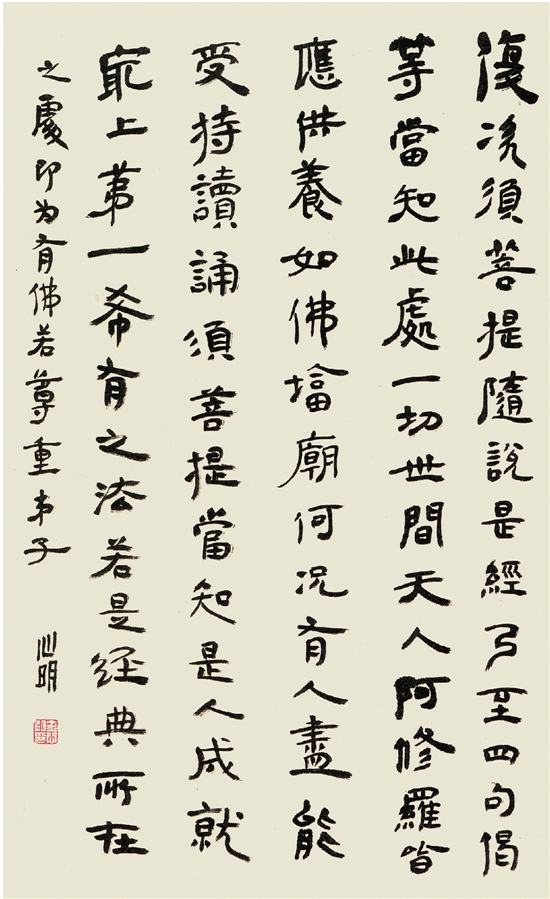 復次須菩提隨說是經乃至四句偈
等當知此處一切世間天人阿修羅皆
應供養如佛塔廟何况有人盡能
受持讀誦須菩提當知是人成就
冣上第一希有之法若是経典所在
之處即为有佛若尊重弟子
心明